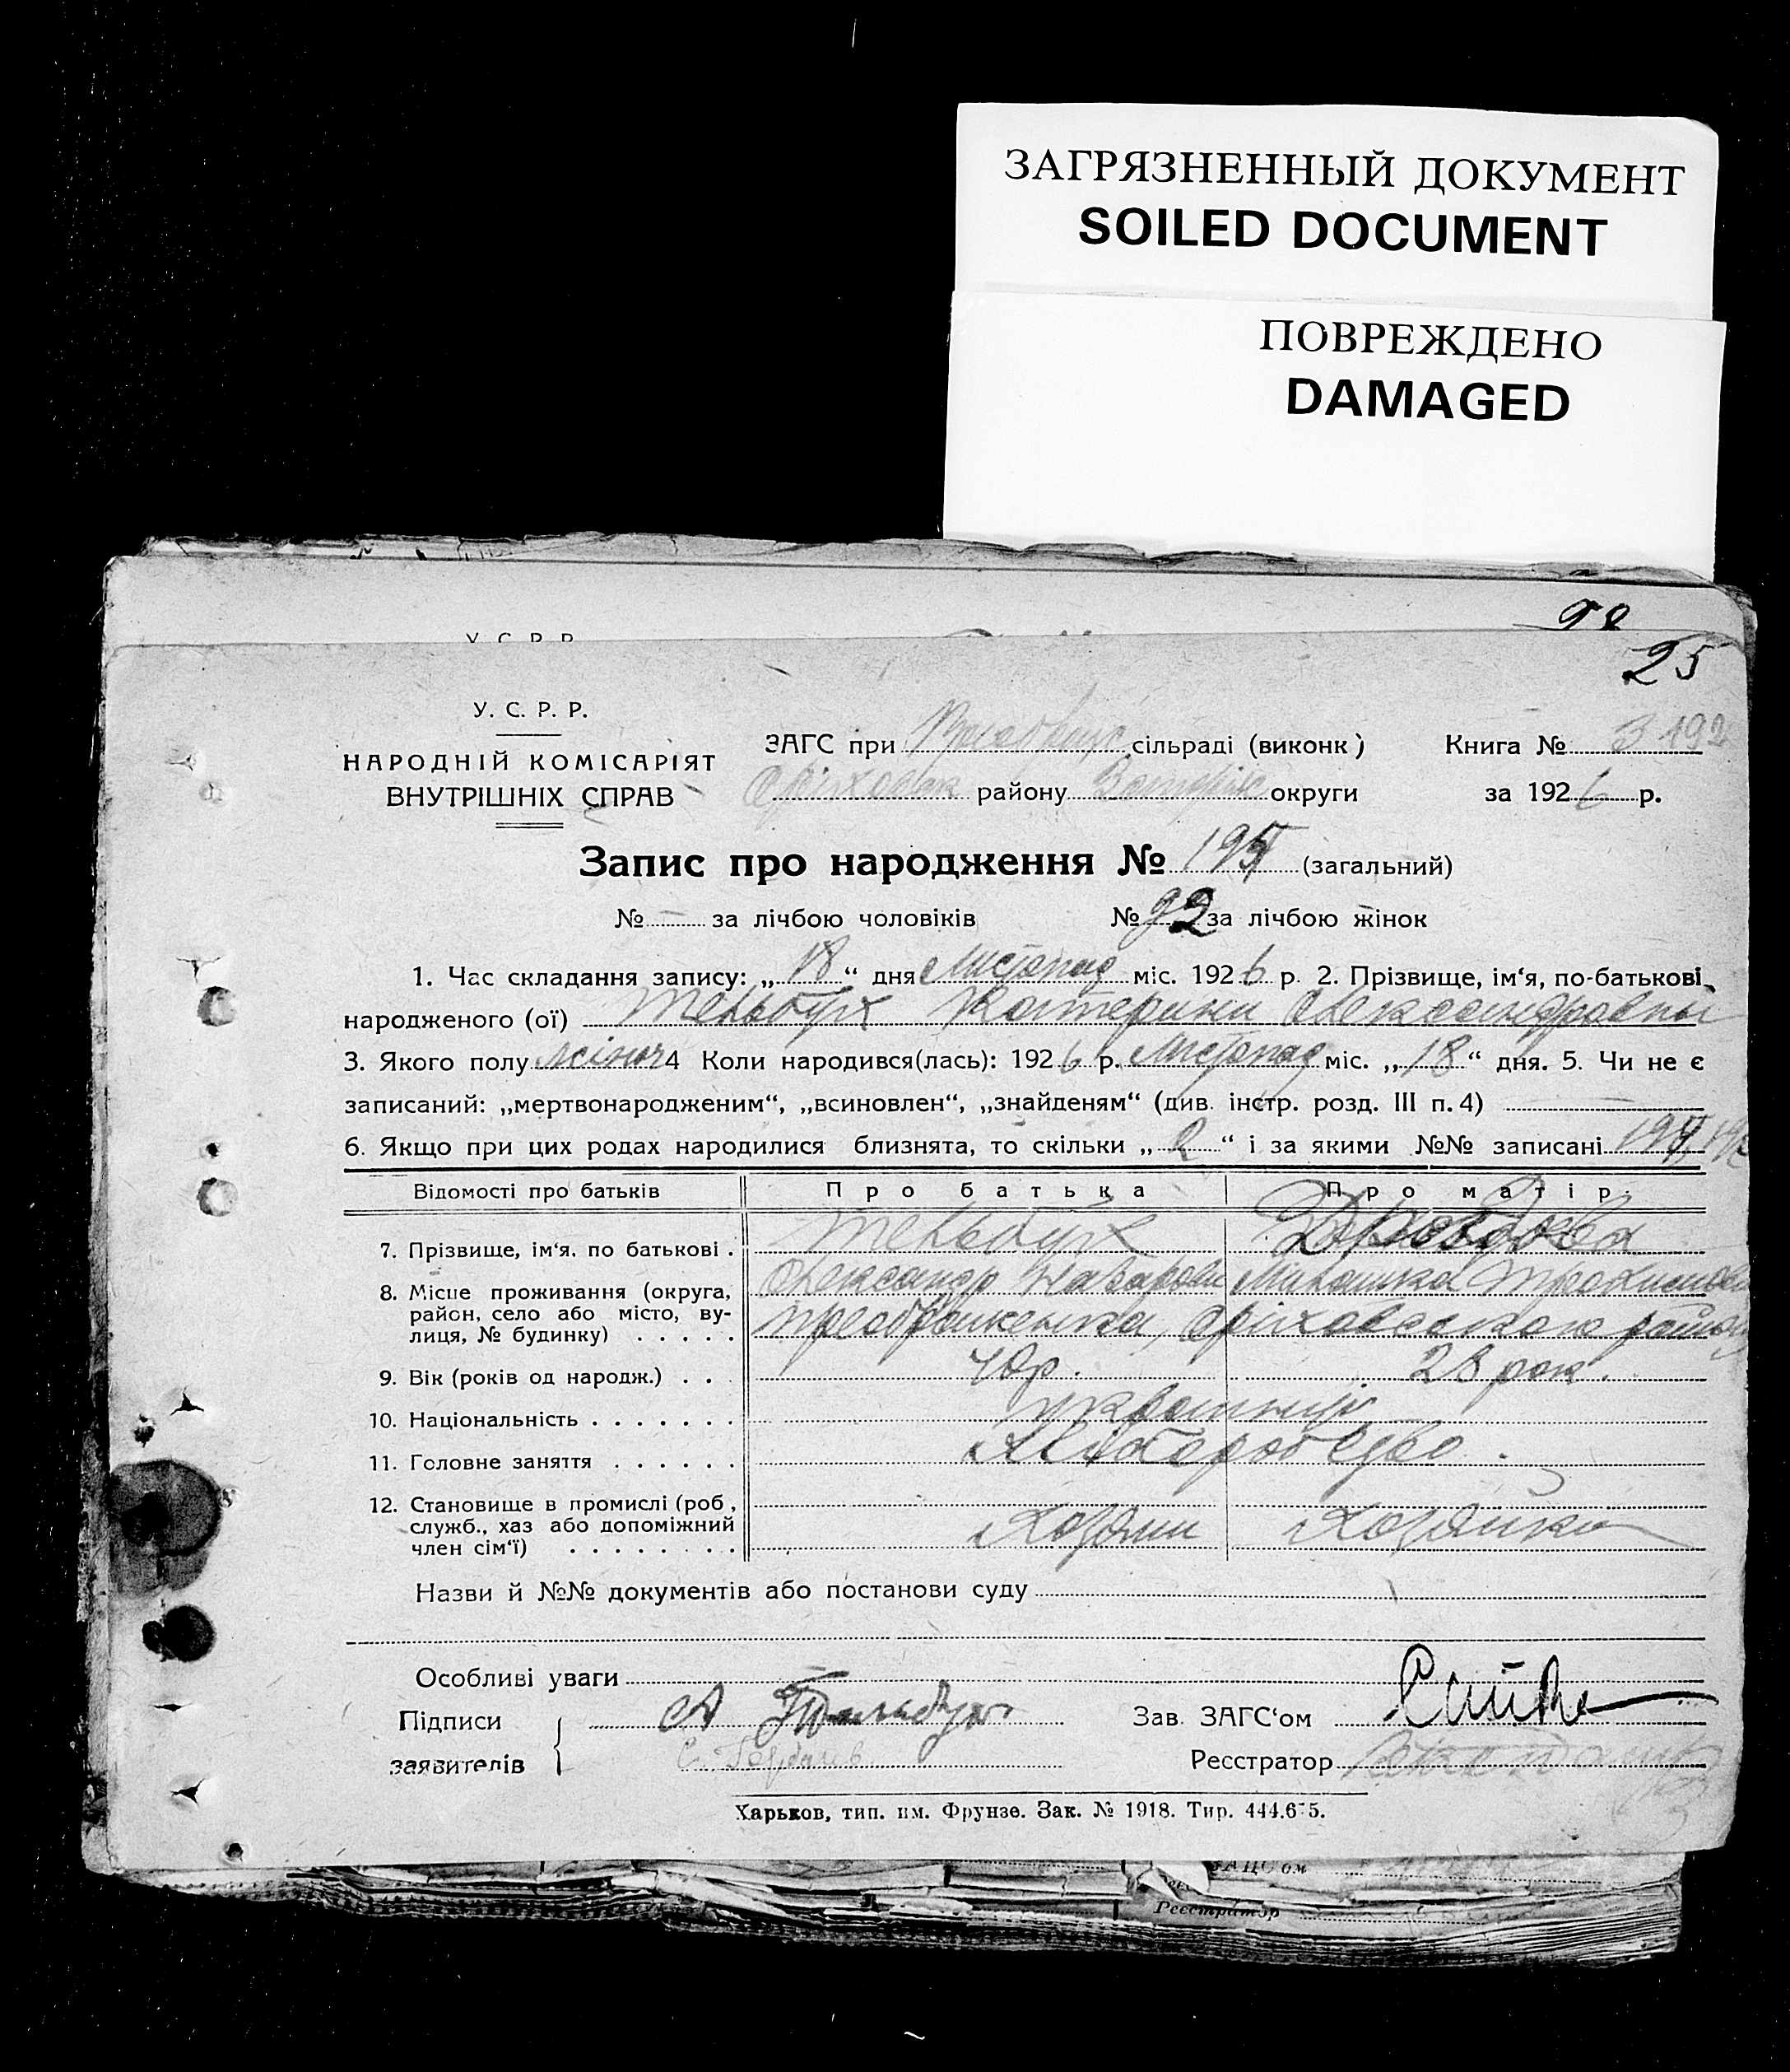 ЗАГРЯЗНЕННЫЙ ДОКУМЕНТ
SOILED DOCUMENT
ПОВРЕЖДЕНО
DAMAGED
98
У. С. Р. Р.
25
У. С. Р. Р.
НАРОДНІЙ КОМІСАРІЯТ
ВНУТРІШНІХ СПРАВ
ЗАГС при сільраді (виконк) Книга № 3 192
району округи за 1926 р.
Запис про народження № 195 (загальний)
№ — за лічбою чоловіків № 92 за лічбою жінок
1. Час складання запису: „18“ дня Листопад міс. 1926 р. 2. Прізвище, ім‘я, по-батькові
народженого (ої) Тельбух Катерини Олександровны
3. Якого полу жіноч 4 Коли народився(лась): 1926 р. Листопад міс. „18“ дня. 5. Чи не є
записаний: „мертвонародженим“, „всиновлен“, „знайденям“ (див. інстр. розд. III п. 4)
6. Якщо при цих родах народилися близнята, то скільки „2“ і за якими №№ записані 194, 195
Відомості про батьків Про батька Про матір
7. Прізвище, ім‘я. по батькові . Тельбух Дроздова
Олександр Назарови
8. Місце проживання (округа, район, село або місто, вулиця, № будинку) . . . . . Преображенка, Оріховского району
9. Вік (років од народж.) . . . 40р. 28 рок.
10. Національність . . . . . . . українці
11. Головне заняття . . . . . . Хліборобство.
12. Становище в промислі (роб, служб., хаз або допоміжний член сім‘ї) . . . . . . . . Хозяин Хозяйка
Назви й №№ документів або постанови суду
Особливі уваги
Підписи А Тельбух Зав. ЗАГС‘ом
заявителів Реєстратор
Харьков, тип. им. Фрунзе. Зак. № 1918. Тир. 444.675.
ЗАГС‘ом
Реєстратор